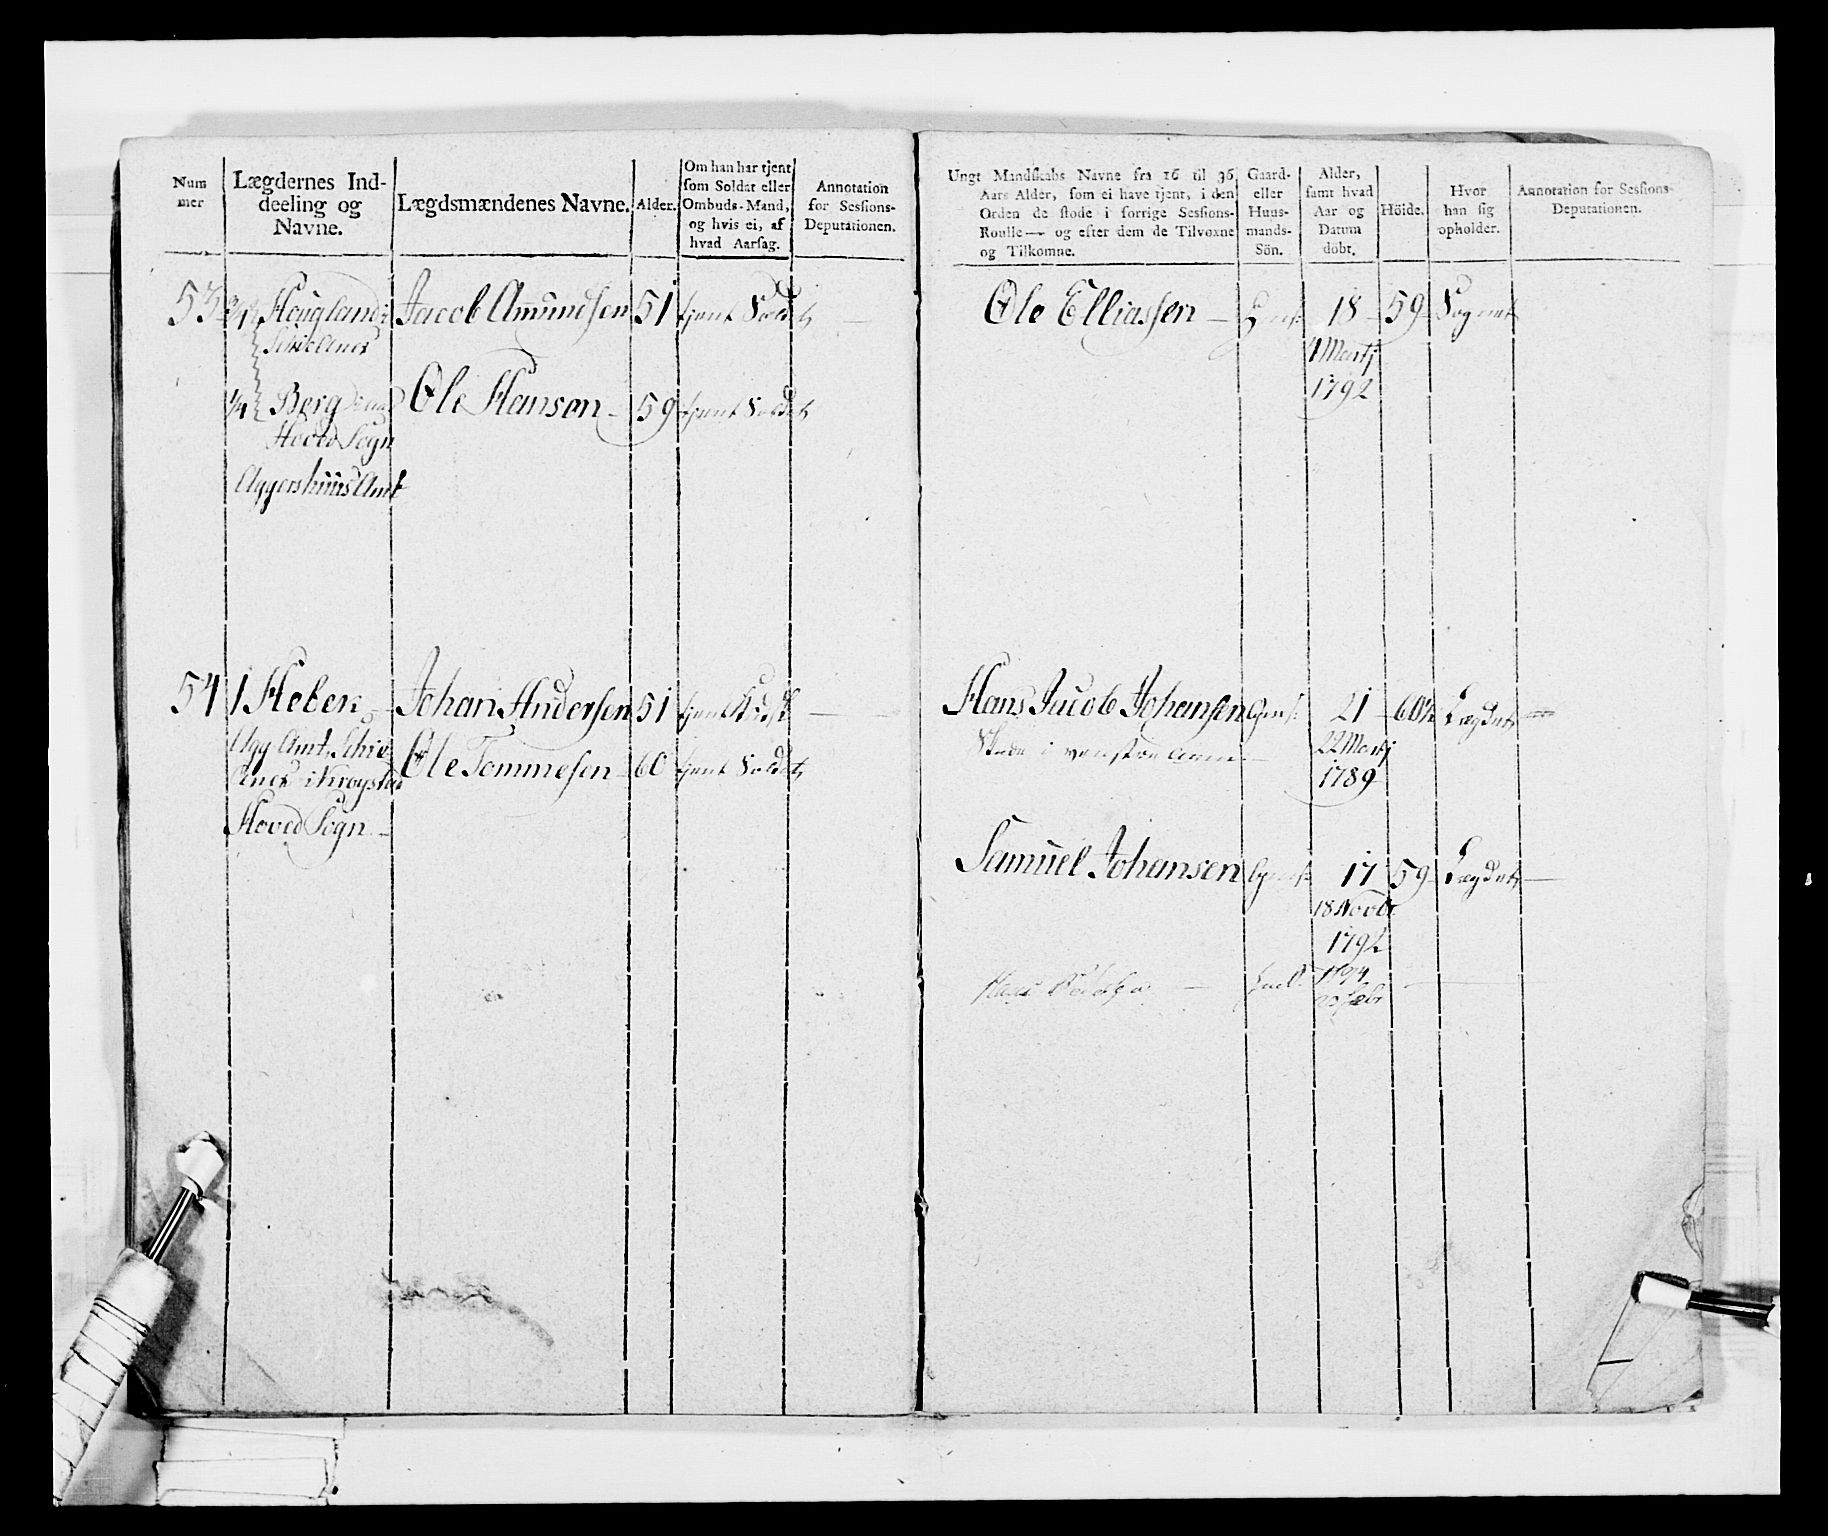 Num
mer
Lægdernes Ind-
deeling og
Navne.
Lægdsmændenes Navne.
Alder.
Om han har tjent
som Soldat eller
Ombuds-Mand,
og hvis ei, af
hvad Aarsag.
Annotation
for Sessions-
Deputationen.
53 3/4 Hougland Jacob Amundsen 51 tjent Soldat
1/4 Berg Ole Hanson 59 tjent Soldat
Hoved Sogn
Aggershuus Amt
54 1 Heber Johan Andersen 51 tjent
Agg Amt Schie Ole Tommesen 60 tjent Soldat
Anes i Krogstad
Hoved Sogn
Ungt Mandskabs Navne fra 16 til 36
Aars Alder, som ei have tjent, i den
Orden de stode i forrige Sessions-
Roulle — og efter dem de Tilvoxne
og Tilkomne.
Gaard-
eller
Huus-
mands-
Sön.
Alder,
samt hvad
Aar og
Datum
döbt.
Höide.
Hvor
han sig
opholder.
Annotation for Sessions-
Deputationen.
Ole Elliassen 18 59 Sognet
1 Martj
1792
Hans Jacob Johansen 21 60½ Lægdet
i venstre Arm 22 Martj
1789
Samuel Johansen 17 59 Lægdet
18 Novbr
1792
1794